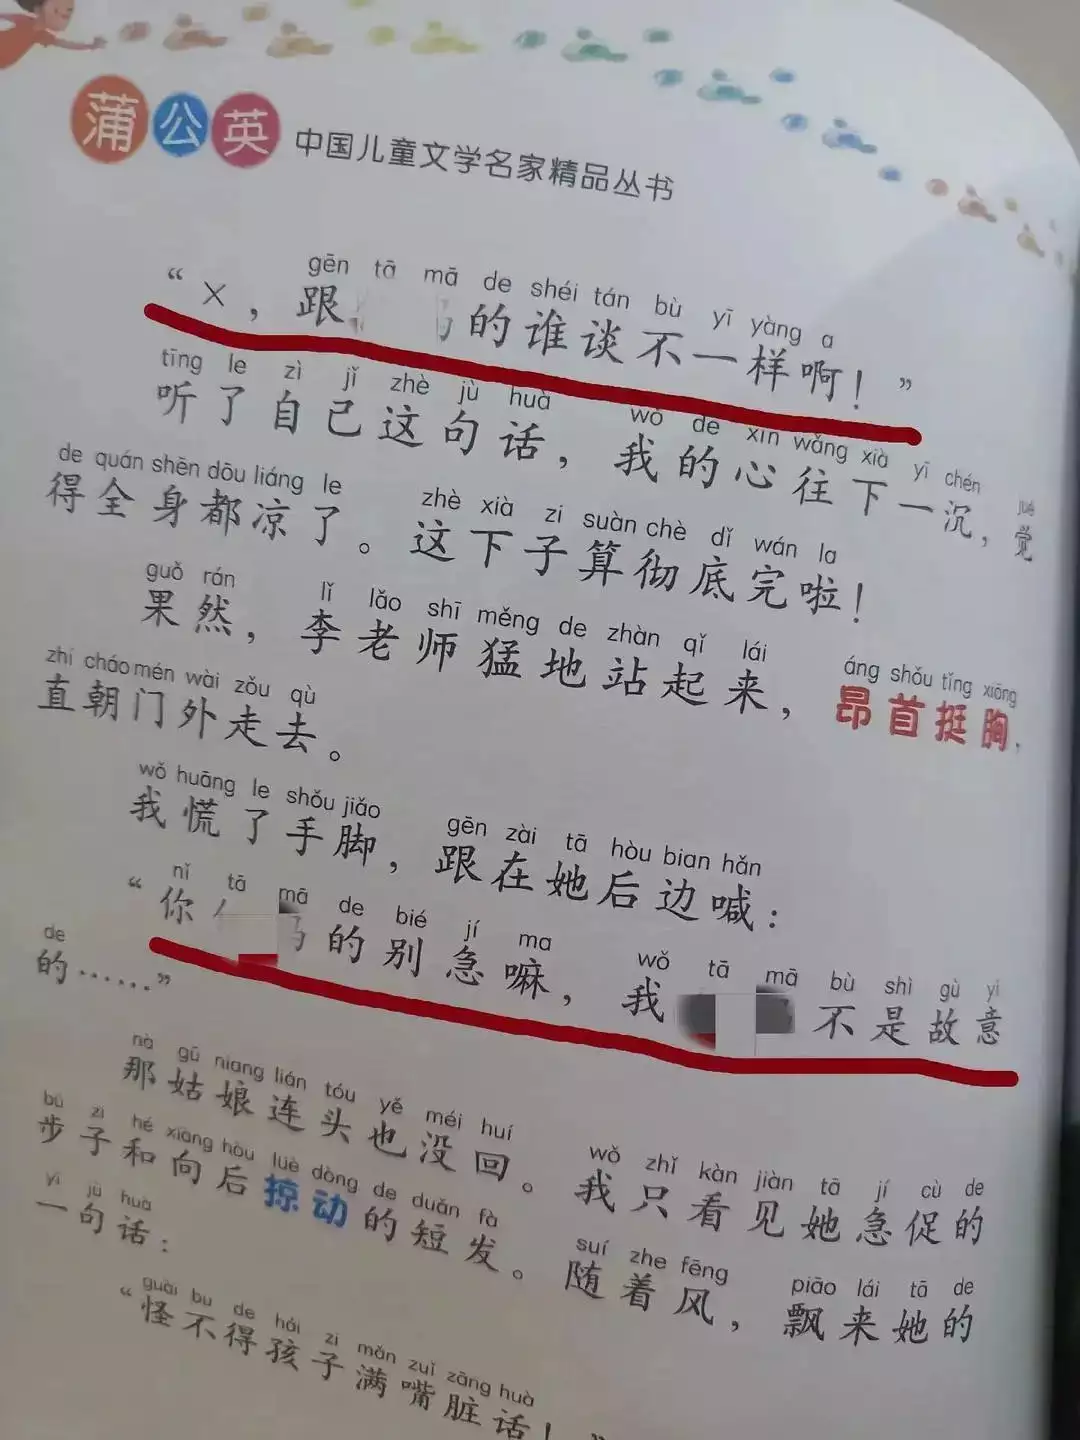 蒲公英 中国儿童文学名家精品丛书
gēn tā mā de shéi tán bù yī yàng a
“×，跟的谁谈不一样啊！”
tīng le zì jǐ zhè jù huà wǒ de xīn wǎng xià yī chén jué
听了自己这句话，我的心往下一沉，觉
de quán shēn dōu liáng le zhè xià zi suàn chè dǐ wán la
得全身都凉了。这下子算彻底完啦！
guǒ rán lǐ lǎo shī měng de zhàn qǐ lái áng shǒu tǐng xiōng
果然，李老师猛地站起来，昂首挺胸，
zhí cháo mén wài zǒu qù
直朝门外走去。
wǒ huāng le shǒu jiǎo gēn zài tā hòu bian hǎn
我慌了手脚，跟在她后边喊：
nǐ tā mā de bié jí ma wǒ tā mā bù shì gù yì
“你的别急嘛，我不是故意
de
的……”
nà gū niang lián tóu yě méi huí wǒ zhǐ kàn jiàn tā jí cù de
那姑娘连头也没回。我只看见她急促的
bù zi hé xiàng hòu lüè dòng de duǎn fà suí zhe fēng piāo lái tā de
步子和向后掠动的短发。随着风，飘来她的
yí jù huà
一句话：
guài bu de hái zi mǎn zuǐ zāng huà
“怪不得孩子满嘴脏话！”